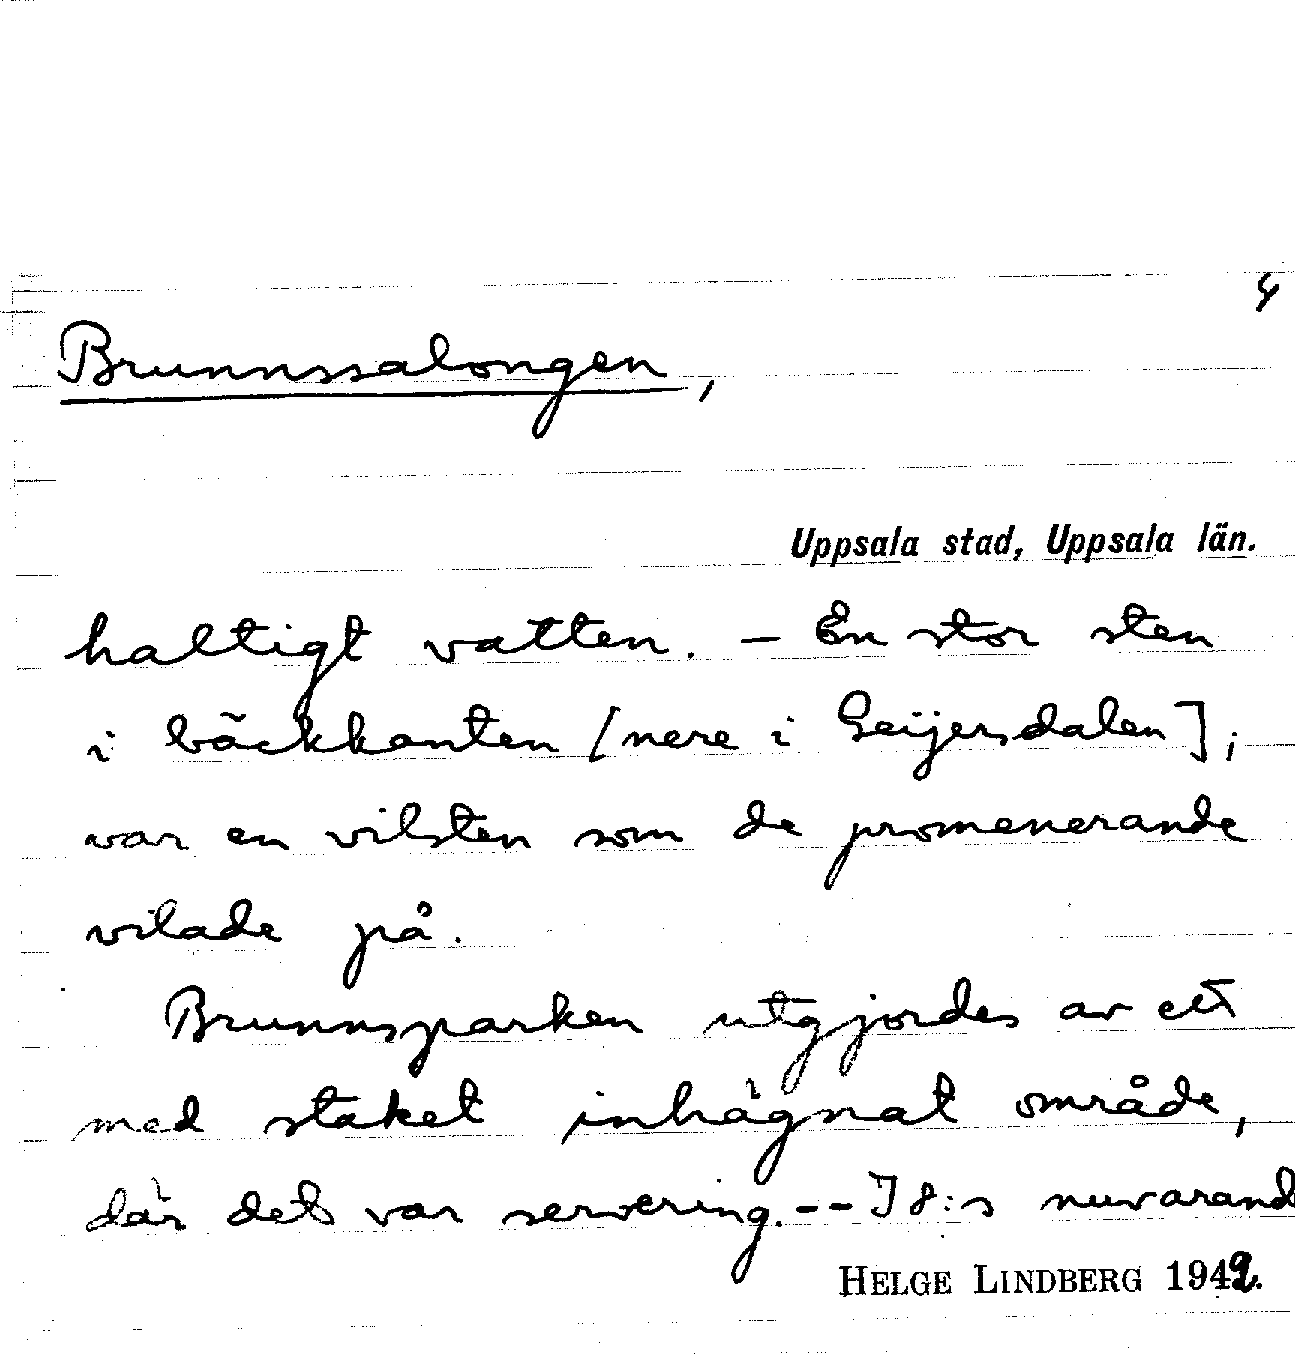 4
Brunnssalongen,
Uppsala stad, Uppsala län.
haltigt vatten. – En stor sten
i bäckkanten [nere i Geijersdalen];
var en vilsten som de promenerande
vilade på.
Brunnsparken utgjordes av ett
med staket inhägnat område,
där det var servering. -- I 8:s nuvarand
HELGE LINDBERG 1949.